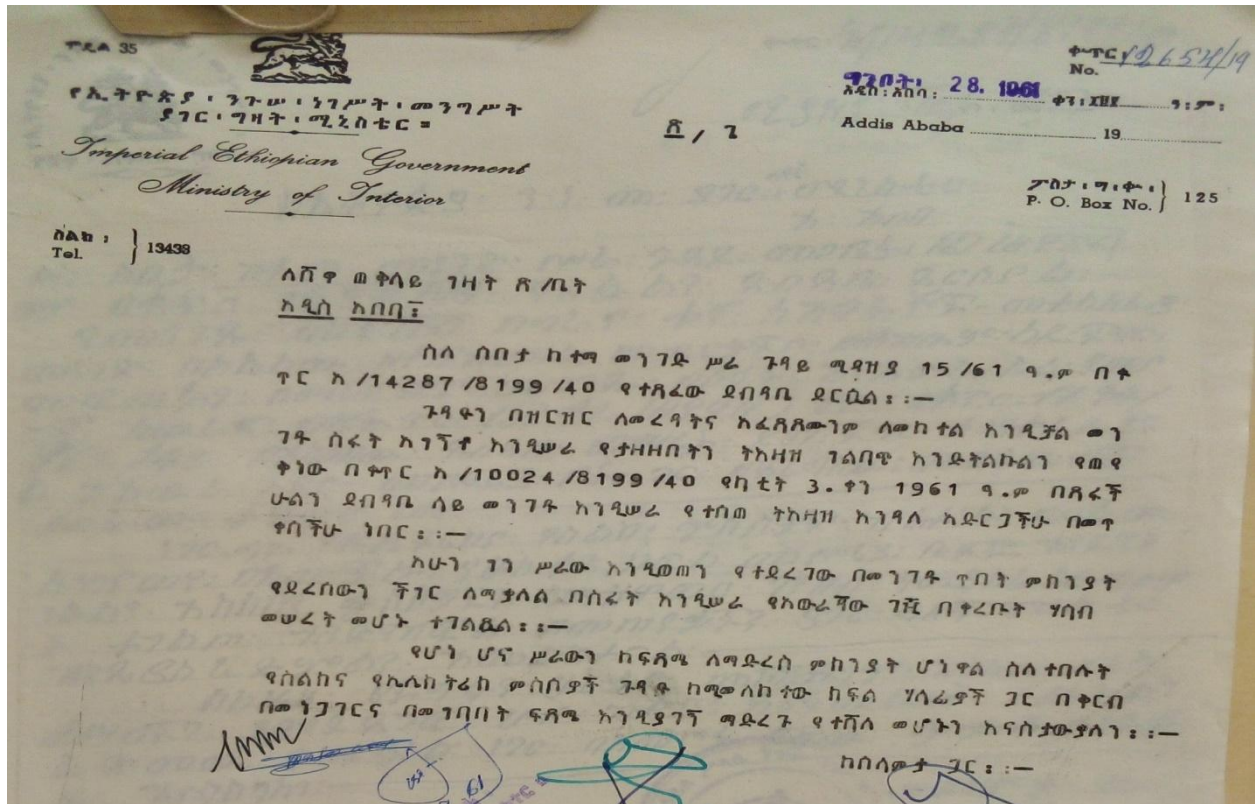 ሞዴል 35
ቍጥር 12654/19
No.
የኢትዮጵያ፡ንጉሠ፡ነገሥት፡መንግሥት
ያገር፡ግዛት፡ሚኒስቴር።
Imperial Ethiopian Government
Ministry of Interior
ግንቦት 28. 1961
አዲስ፡አበባ፡ ቀን፡ 19 ዓ፡ም፡
Addis Ababa 19
ሸ/ጊ
ፖስታ፡ሣ፡ቍ፡
P. O. Box No. } 125
ስልክ፡
Tel. } 13438
ለሸዋ ጠቅላይ ግዛት ጽ/ቤት
አዲስ አበባ፤
ስለ ሰበታ ከተማ መንገድ ሥራ ጉዳይ ሚያዝያ 15/61 ዓ.ም በቁ
ጥር አ/14287/8199/40 የተጻፈው ደብዳቤ ደርሷል፡፡—
ጉዳዩን በዝርዝር ለመረዳትና አፈጻጸሙንም ለመከተል እንዲቻል መን
ገዱ ስፋት አግኝቶ እንዲሠራ የታዘዘበትን ትእዛዝ ግልባጭ እንድትልኩልን የጠየ
ቅነው በቀጥር አ/10024/8199/40 የካቲት 3. ቀን 1961 ዓ.ም በጻፋች
ሁልን ደብዳቤ ላይ መንገዱ እንዲሠራ የተሰጠ ትእዛዝ እንዳለ አድርጋችሁ በመጥ
ቀሳችሁ ነበር፡፡—
አሁን ግን ሥራው እንዲወጠን የተደረገው በመንገዱ ጥበት ምክንያት
የደረሰውን ችግር ለማቃለል በስፋት እንዲሠራ የአውራጃው ገዢ በቀረቡት ሃሳብ
መሠረት መሆኑ ተገልጿል፡፡—
የሆነ ሆኖ ሥራውን ከፍጻሜ ለማድረስ ምክንያት ሆነዋል ስለተባሉት
የስልክና የኤሌክትሪክ ምሰሶዎች ጉዳዩ ከሚመለከተው ክፍል ሃላፊዎች ጋር በቅርብ
በመነጋገርና በመግባባት ፍጻሜ እንዲያገኝ ማድረጉ የተሻለ መሆኑን እናስታውቃለን፡፡—
ከሰላምታ ጋር፡፡—